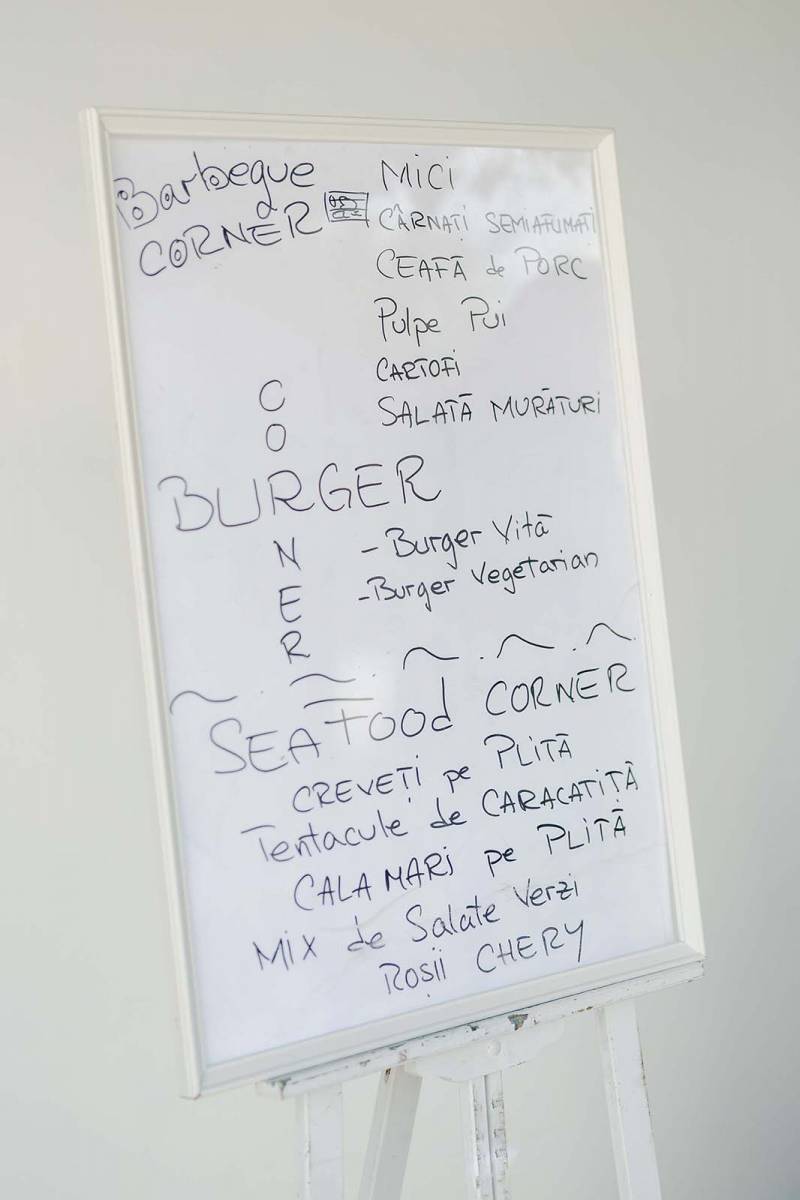 Barbeque
CORNER
MiCi
CÂRNAȚI SEMIAFUMAȚI
CEAFĂ de PORC
Pulpe Pui
CARTOFI
SALATĂ MURĂTURI
CORNER
BURGER
- Burger Vită
- Burger Vegetarian
SEAFOOd CORNER
CREVEȚI pe PLITĂ
Tentacule de CARACATIȚĂ
CALAMARi pe PLITĂ
Mix de Salate Verzi
Roșii CHERY